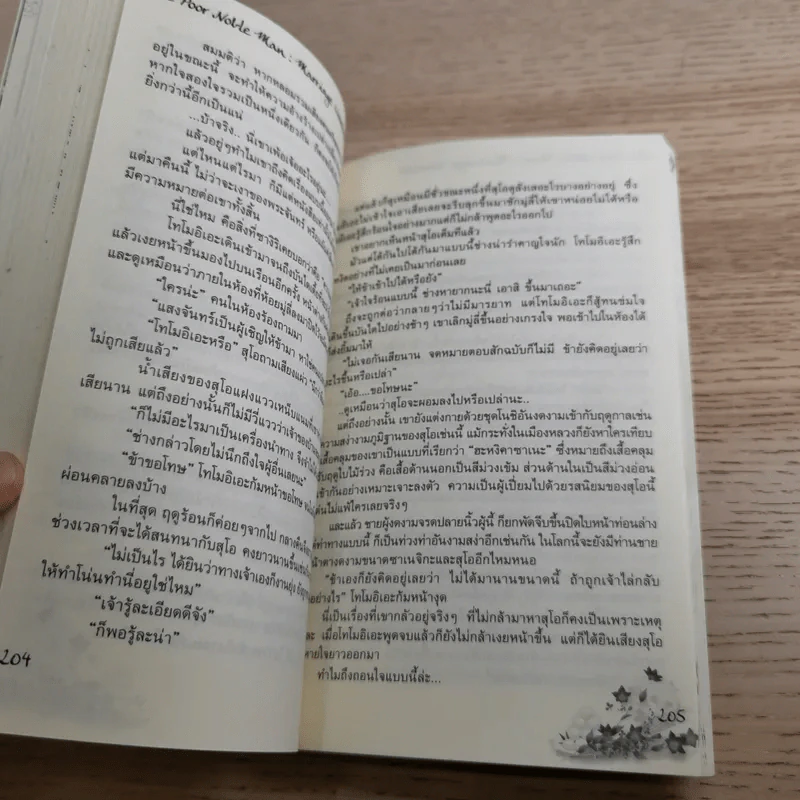 Poor Noble Man : Marriage
สมมติว่า หากหลอมรวม
อยู่ในขณะนี้ จะทำให้ความอ้างว้าง
หากใจสองใจรวมเป็นหนึ่งเดียวกัน
ยิ่งกว่านี้อีกเป็นแน่
...บ้าจริง.. นี่เขาเพ้อเจ้ออะไรอยู่
แล้วอยู่ๆทำไมเขาถึงคิดเรื่อง
แต่ไหนแต่ไรมา ก็มีแต่หนังสือเท่านั้น
แต่มาคืนนี้ ไม่ว่าจะเงาของพระจันทร์ หรือ
มีความหมายต่อเขาทั้งสิ้น
นี่ใช่ไหม คือสิ่งที่ซางิริเคยบอกว่าคือ
โทโมอิเอะเดินเข้ามาจนถึงบันได
แล้วเงยหน้าขึ้นมองไปบนเรือนอีกครั้ง หน้าต่าง
และดูเหมือนว่าภายในห้องที่ห้อยมู่ลี่ลงมา
"ใครน่ะ" คนในห้องร้องถามมา
"แสงจันทร์เป็นผู้เชิญให้ข้ามา หาใช่
"โทโมอิเอะหรือ" สุโอถามเสียงแผ่ว
ไม่ถูกเสียแล้ว"
น้ำเสียงของสุโอแฝงแววเหน็บแนม
เสียนาน แต่ถึงอย่างนั้นก็ไม่มีวี่แววว่าเจ้าของ
"ก็ไม่มีอะไรมาเป็นเครื่องนำทาง จึง
"ช่างกล่าวโดยไม่นึกถึงใจผู้อื่นเลยนะ"
"ข้าขอโทษ" โทโมอิเอะก้มหน้าขอโทษ
ผ่อนคลายลงบ้าง
ในที่สุด ฤดูร้อนก็ค่อยๆจากไป กลางคืน
ช่วงเวลาที่จะได้สนทนากับสุโอ คงยาวนานขึ้น
"ไม่เป็นไร ได้ยินว่าทางเจ้าเองก็งานยุ่ง
ให้ทำโน่นทำนี่อยู่ใช่ไหม"
"เจ้ารู้ละเอียดดีจัง"
"ก็พอรู้ละน่า"
204
แต่แล้วก็ดูเหมือนมีชั่วขณะหนึ่งที่สุโอดูลังเลอะไรบางอย่างอยู่ ซึ่ง
อิเอะไม่เข้าใจเอาเสียเลยจะรีบลุกขึ้นมาชักมู่ลี่ให้เขาหน่อยไม่ได้หรือ
อิเอะรู้สึกร้อนใจอย่างมากแต่ก็ไม่กล้าพูดอะไรออกไป
เขาอยากเห็นหน้าสุโอเต็มทีแล้ว
มัวแต่โต้กันไปโต้กันมาแบบนี้ช่างน่ารำคาญใจนัก โทโมอิเอะรู้สึก
หงุดหงิดอย่างที่ไม่เคยเป็นมาก่อนเลย
"ให้ข้าเข้าไปได้หรือยัง"
"เจ้าใจร้อนแบบนี้ ช่างหายากนะนี่ เอาสิ ขึ้นมาเถอะ"
ถึงจะถูกต่อว่ากลายๆว่าไม่มีมารยาท แต่โทโมอิเอะก็สู้ทนข่มใจ
เดินขึ้นบันไดไปอย่างช้าๆ เขาเลิกมู่ลี่ขึ้นอย่างเกรงใจ พอเข้าไปในห้องได้
ส่งยิ้มมาให้
"ไม่เจอกันเสียนาน จดหมายตอบสักฉบับก็ไม่มี ข้ายังคิดอยู่เลยว่า
อะไรขึ้นหรือเปล่า"
"เอ้อ....ขอโทษนะ"
..ดูเหมือนว่าสุโอจะผอมลงไปหรือเปล่านะ..
แต่ถึงอย่างนั้น เขายังแต่งกายด้วยชุดโนชิอันงดงามเข้ากับฤดูกาลเช่น
ความสง่างามภูมิฐานของสุโอเช่นนี้ แม้กระทั่งในเมืองหลวงก็ยังหาใครเทียบ
เสื้อคลุมของเขาเป็นแบบที่เรียกว่า "ฮะหงิคาซาเนะ" ซึ่งหมายถึงเสื้อคลุม
รับฤดูใบไม้ร่วง คือเสื้อด้านนอกเป็นสีม่วงเข้ม ส่วนด้านในเป็นสีม่วงอ่อน
เข้ากันอย่างเหมาะเจาะลงตัว ความเป็นผู้เปี่ยมไปด้วยรสนิยมของสุโอนี้
เด่นไม่แพ้ใครเลยจริงๆ
และแล้ว ชายผู้งดงามจรดปลายนิ้วผู้นี้ ก็ยกพัดจีบขึ้นปิดใบหน้าท่อนล่าง
ท่าทางแบบนี้ ก็เป็นท่วงท่าอันงามสง่าอีกเช่นกัน ในโลกนี้จะยังมีท่านชาย
หน้าตางดงามขนาดซาเนจิกะและสุโออีกไหมหนอ
"ข้าเองก็ยังคิดอยู่เลยว่า ไม่ได้มานานขนาดนี้ ถ้าถูกเจ้าไล่กลับ
อย่างไร" โทโมอิเอะก้มหน้างุด
นี่เป็นเรื่องที่เขากลัวอยู่จริงๆ ที่ไม่กล้ามาหาสุโอก็คงเป็นเพราะเหตุ
และ เมื่อโทโมอิเอะพูดจบแล้วก็ยังไม่กล้าเงยหน้าขึ้น แต่ก็ได้ยินเสียงสุโอ
หายใจยาวออกมา
ทำไมถึงถอนใจแบบนี้ล่ะ...
205